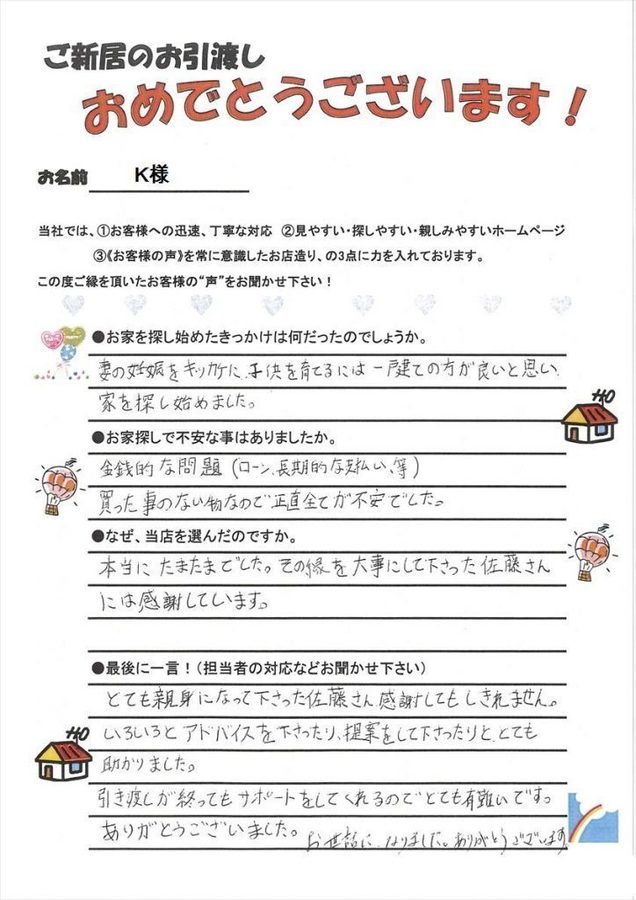 ご新居のお引渡し
おめでとうございます！
お名前 K様
当社では、①お客様への迅速、丁寧な対応 ②見やすい・探しやすい・親しみやすいホームページ
③《お客様の声》を常に意識したお店造り、の3点に力を入れております。
この度ご縁を頂いたお客様の“声”をお聞かせ下さい！
●お家を探し始めたきっかけは何だったのでしょうか。
妻の妊娠をキッカケに、子供を育てるには一戸建ての方が良いと思い
家を探し始めました。
●お家探しで不安な事はありましたか。
金銭的な問題（ローン、長期的な支払い、等）
買った事のない物なので正直全てが不安でした。
●なぜ、当店を選んだのですか。
本当にたまたまでした。その縁を大事にして下さった佐藤さん
には感謝しています。
●最後に一言！（担当者の対応などお聞かせ下さい）
とても親身になって下さった佐藤さん感謝してもしきれません。
いろいろとアドバイスを下さったり、提案をして下さったりと、とても
助かりました。
引き渡しが終ってもサポートをしてくれるのでとても有難いです。
ありがとうございました。お世話になりました。ありがとうございます